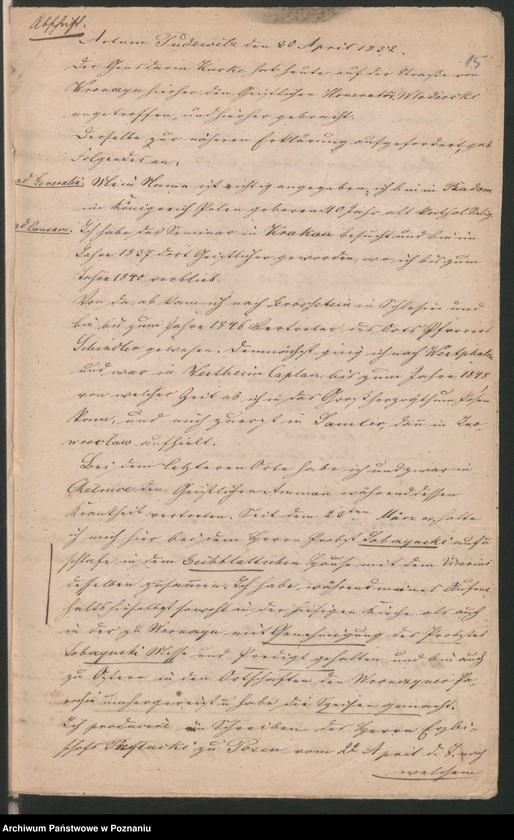 Abschrift.
15
Actum Pudewitz den 30 April 1852.
Der Gensdarm Kurke hat heute auf der Straße von
hierher den Geistlichen Honorat
angetroffen, und hierher gebracht.
Derselbe zur näheren Erklärung aufgefordert, gab
Folgendes an.
ad Generalia. Mein Name ist richtig angegeben, ich bin in Radom
im Königreich Polen geboren 40 Jahr alt kathol. Relig.
ad Causam. Ich habe das Seminar in Krakau besucht und bin im
Jahre 1837 dort Geistlicher geworden, wo ich bis zum
Jahre 1840 verblieb.
Von da ab kam ich nach in Schlesien und
bin bis zum Jahre 1846 Vertreter des Orts Pfarrers
Schindler gewesen. Demnächst ging ich nach Westphalen
und war in Caplan bis zum Jahre 1848
von welcher Zeit ab ich in das Großherzogthum Posen
kam, und mich zuerst in Samter, dann in Ino-
wroclaw aufhielt.
Bei dem letzteren Orte habe ich und zwar in
den Geistlichen während dessen
Krankheit vertreten. Seit dem 23ten März c. halte
ich mich hier bei dem Herrn Probst auf u
schlafe in dem Hause mit dem Vicarius
desselben zusammen. Ich habe während meines Aufent
halts hieselbst sowohl in der hiesigen Kirche als auch
in der zu mit Genehmigung des Probstes
Messe und Predigt gehalten und bin auch
zu Ostern in den Ortschaften der Pa
rochie umhergereist u. habe die Speisen gemacht.
Ich producire ein Schreiben des Herrn Erzbi-
schofs Przyluski zu Posen vom 22 April d. J. nach
welchem
Archiwum Państwowe w Poznaniu